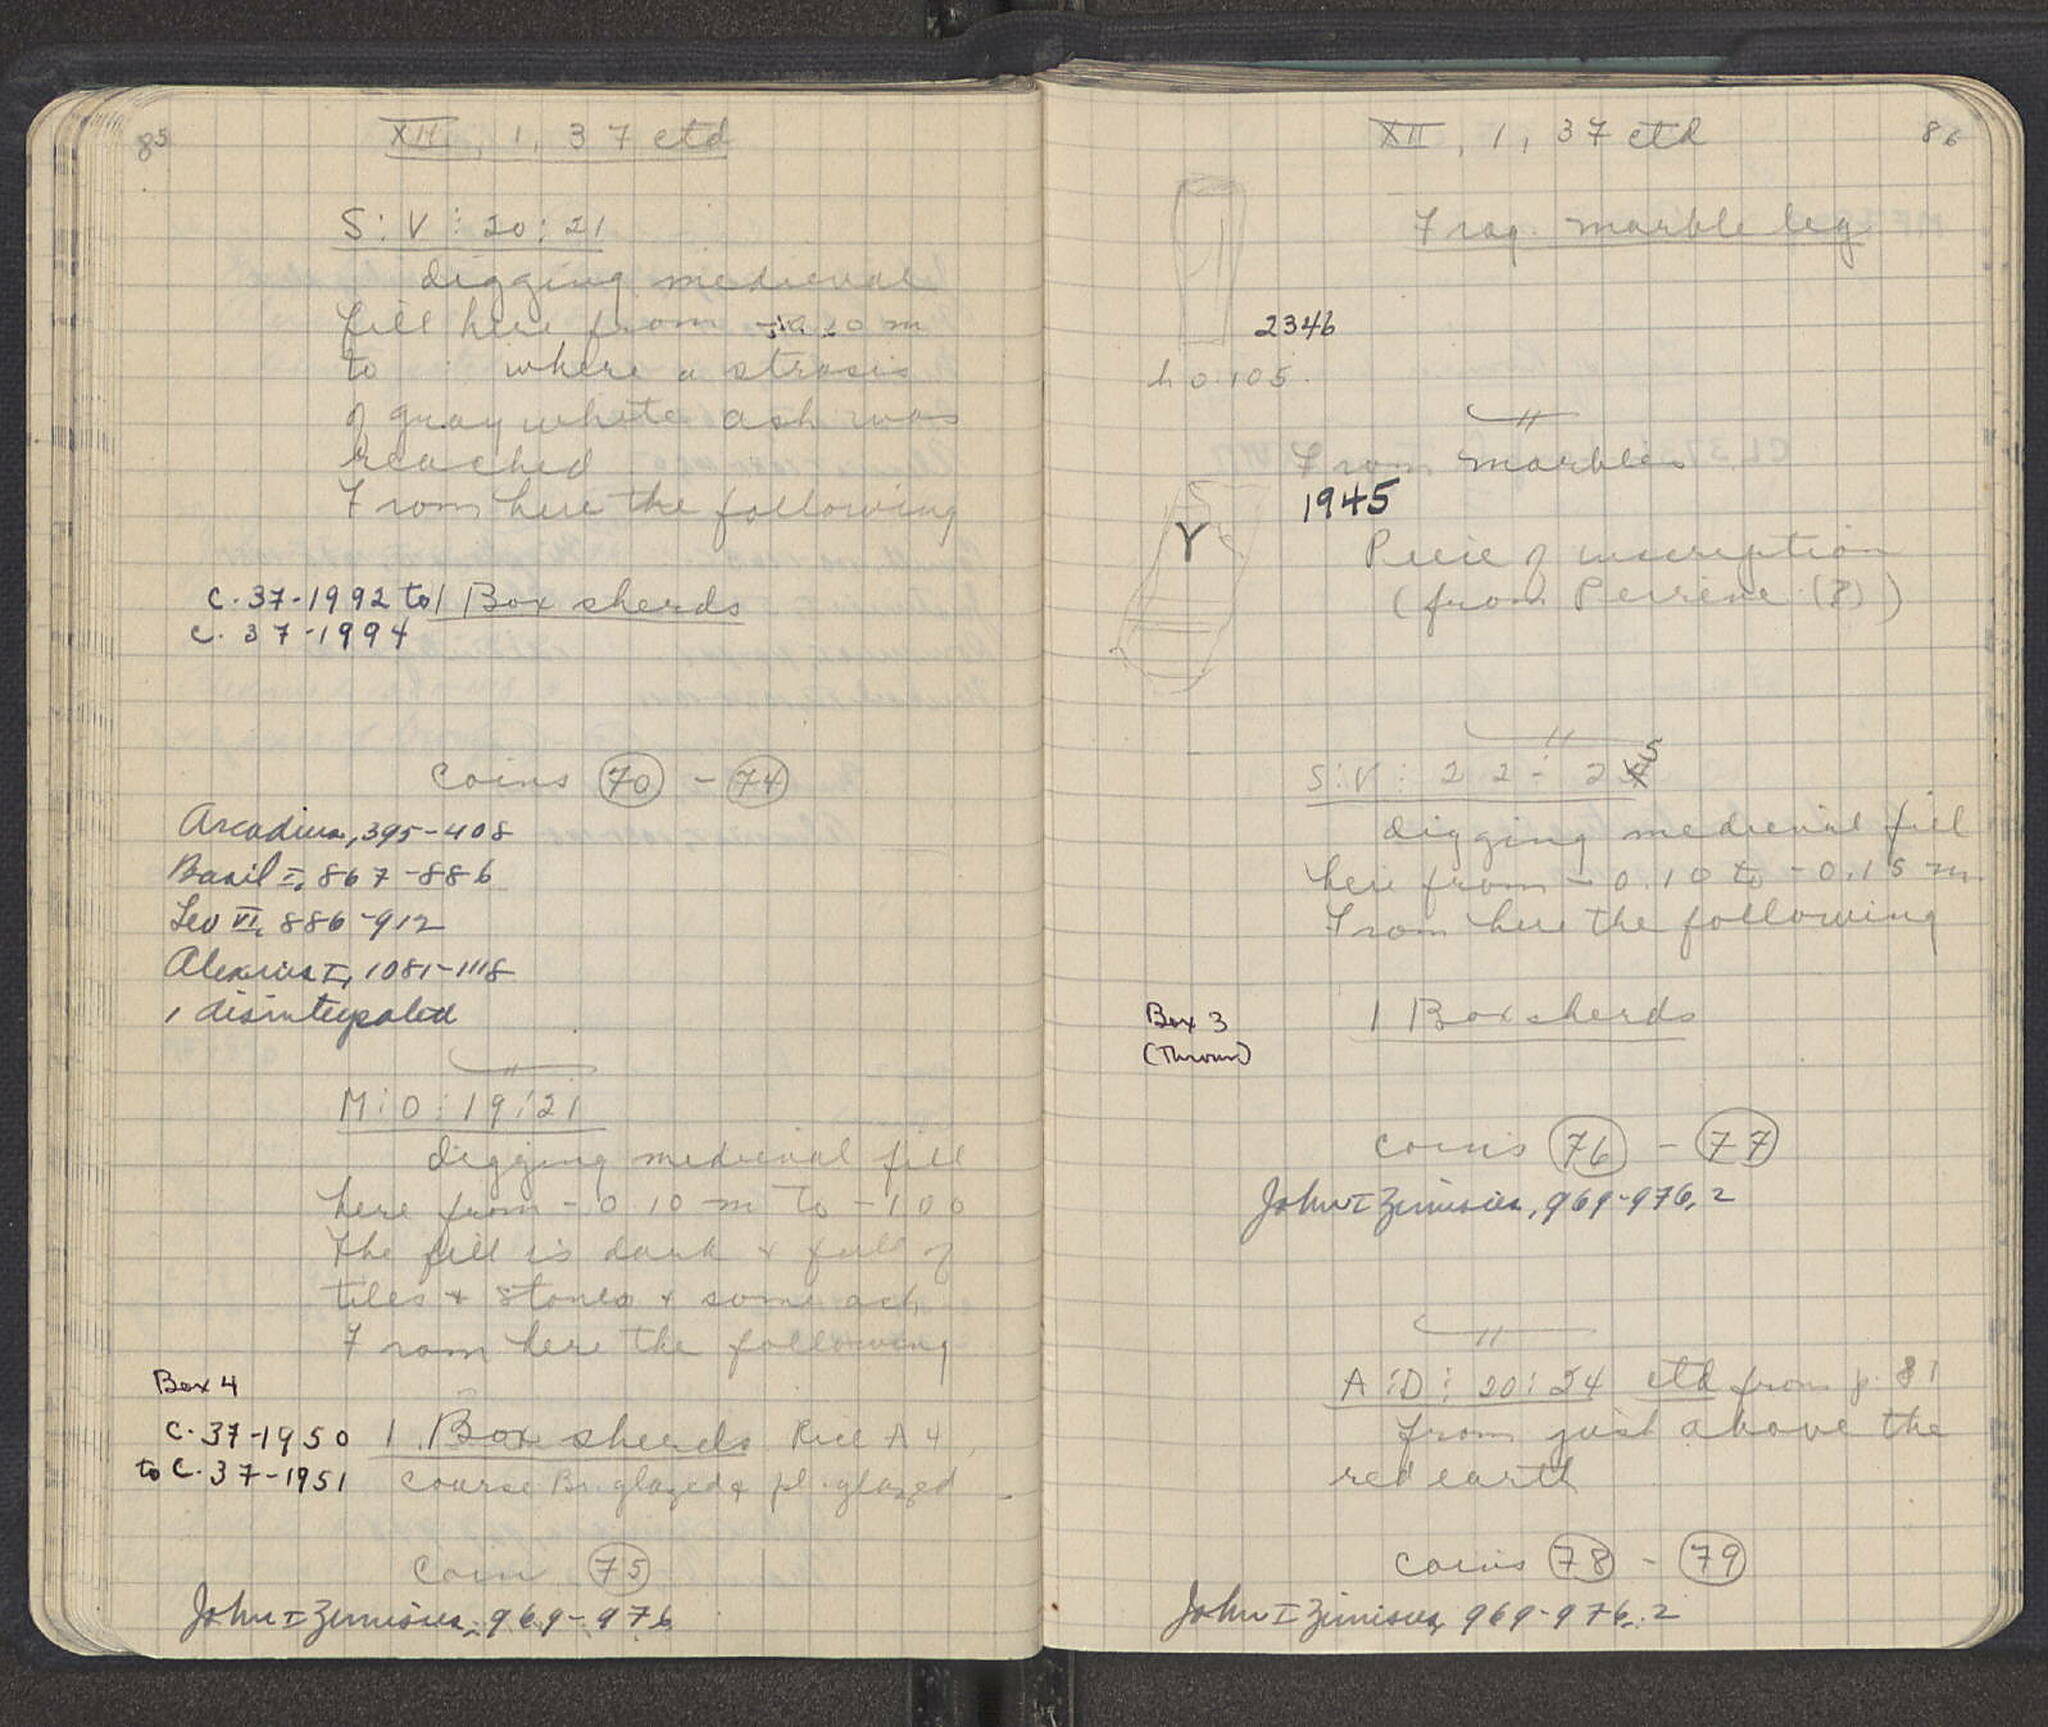 85
XII, 1, 37 ctd
S:V:20:21
digging medieval
fill here from m
to where a strosis
of gray white ash was
reached
From here the following
C.37-1992 to 1 Box sherds
C.37-1994
coins 70 - 74
Arcadius, 395-408
Basil I, 867-886
Leo VI, 886-912
Alexius I, 1081-1118
1 disintegrated
M:O:19:21
digging medieval fill
here from -0.10 m to -1.00
The fill is dark & full of
tiles & stones & some ash
From here the following
Box 4
C.37-1950 1 Box sherds Rice A 4,
to C.37-1951 course Br. glazed & pl. glazed
coin 75
John I Zimisces, 969-976
XII, 1, 37 ctd
86
Frag. marble leg
2346
h 0.105.
From marbles
1945
Y
Piece of inscription
(from Peirene (?))
S:V:22:25
digging medieval fill
here from -0.10 to -0.15 m
From here the following
Box 3
(Thrown)
1 Box sherds
coins 76 - 77
John I Zimisces, 969-976, 2
A:D:20:24 ctd from p. 81
from just above the
red earth
coins 78 - 79
John I Zimisces, 969-976, 2